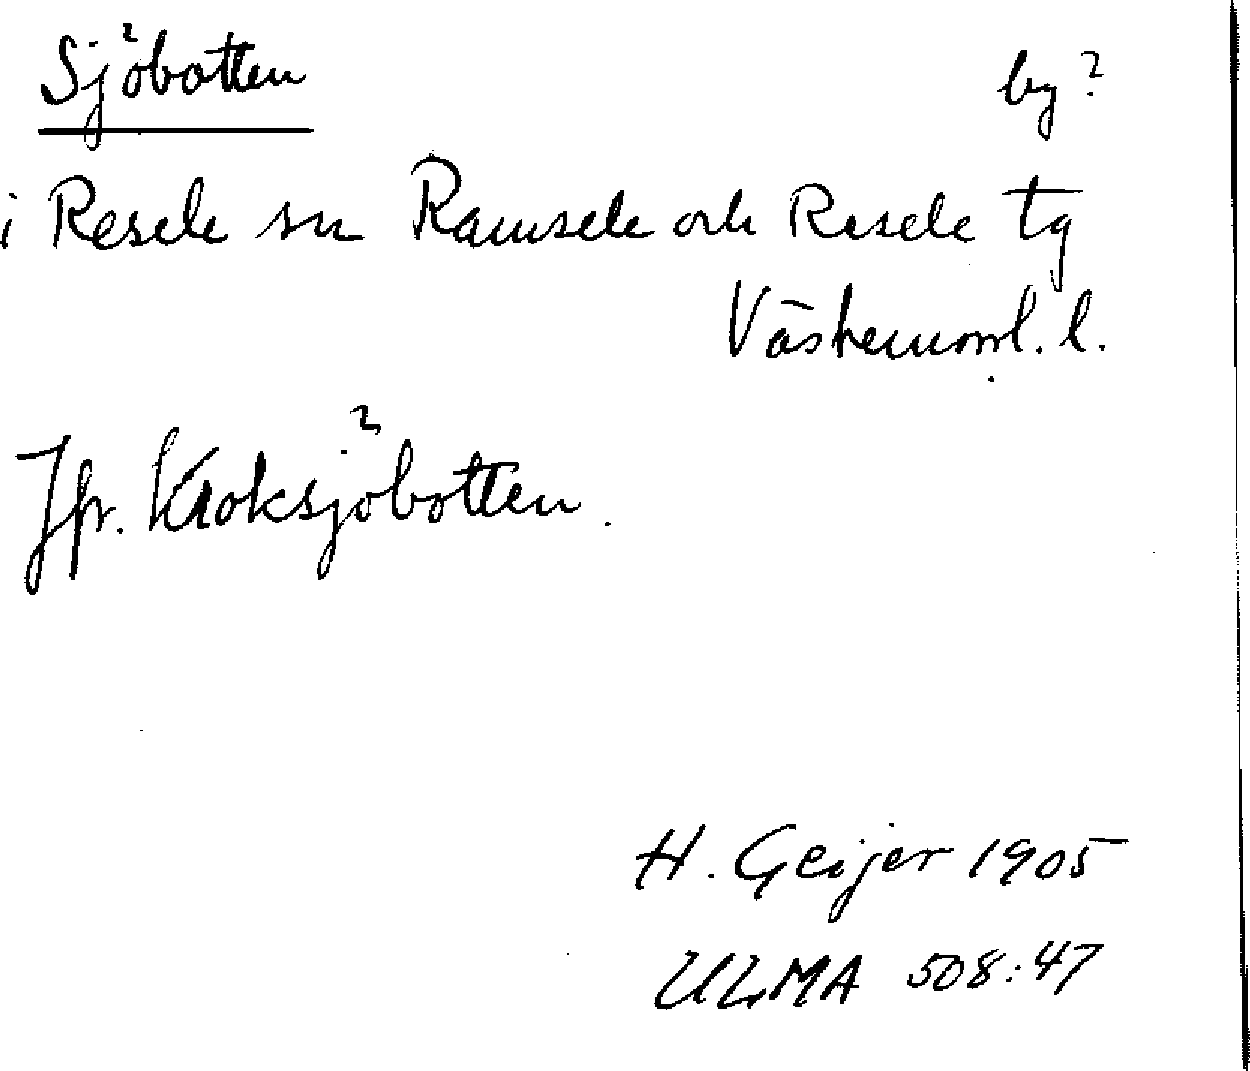 Sjöbotten by?
i Resele sn Ramsele och Resele tg
Västernorrl. l.
Jfr. Kroksjöbotten.
H. Geijer 1905
ULMA 508:47